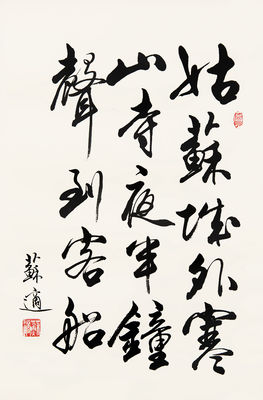 姑蘇城外寒
山寺夜半鐘
聲到客船
蘇適